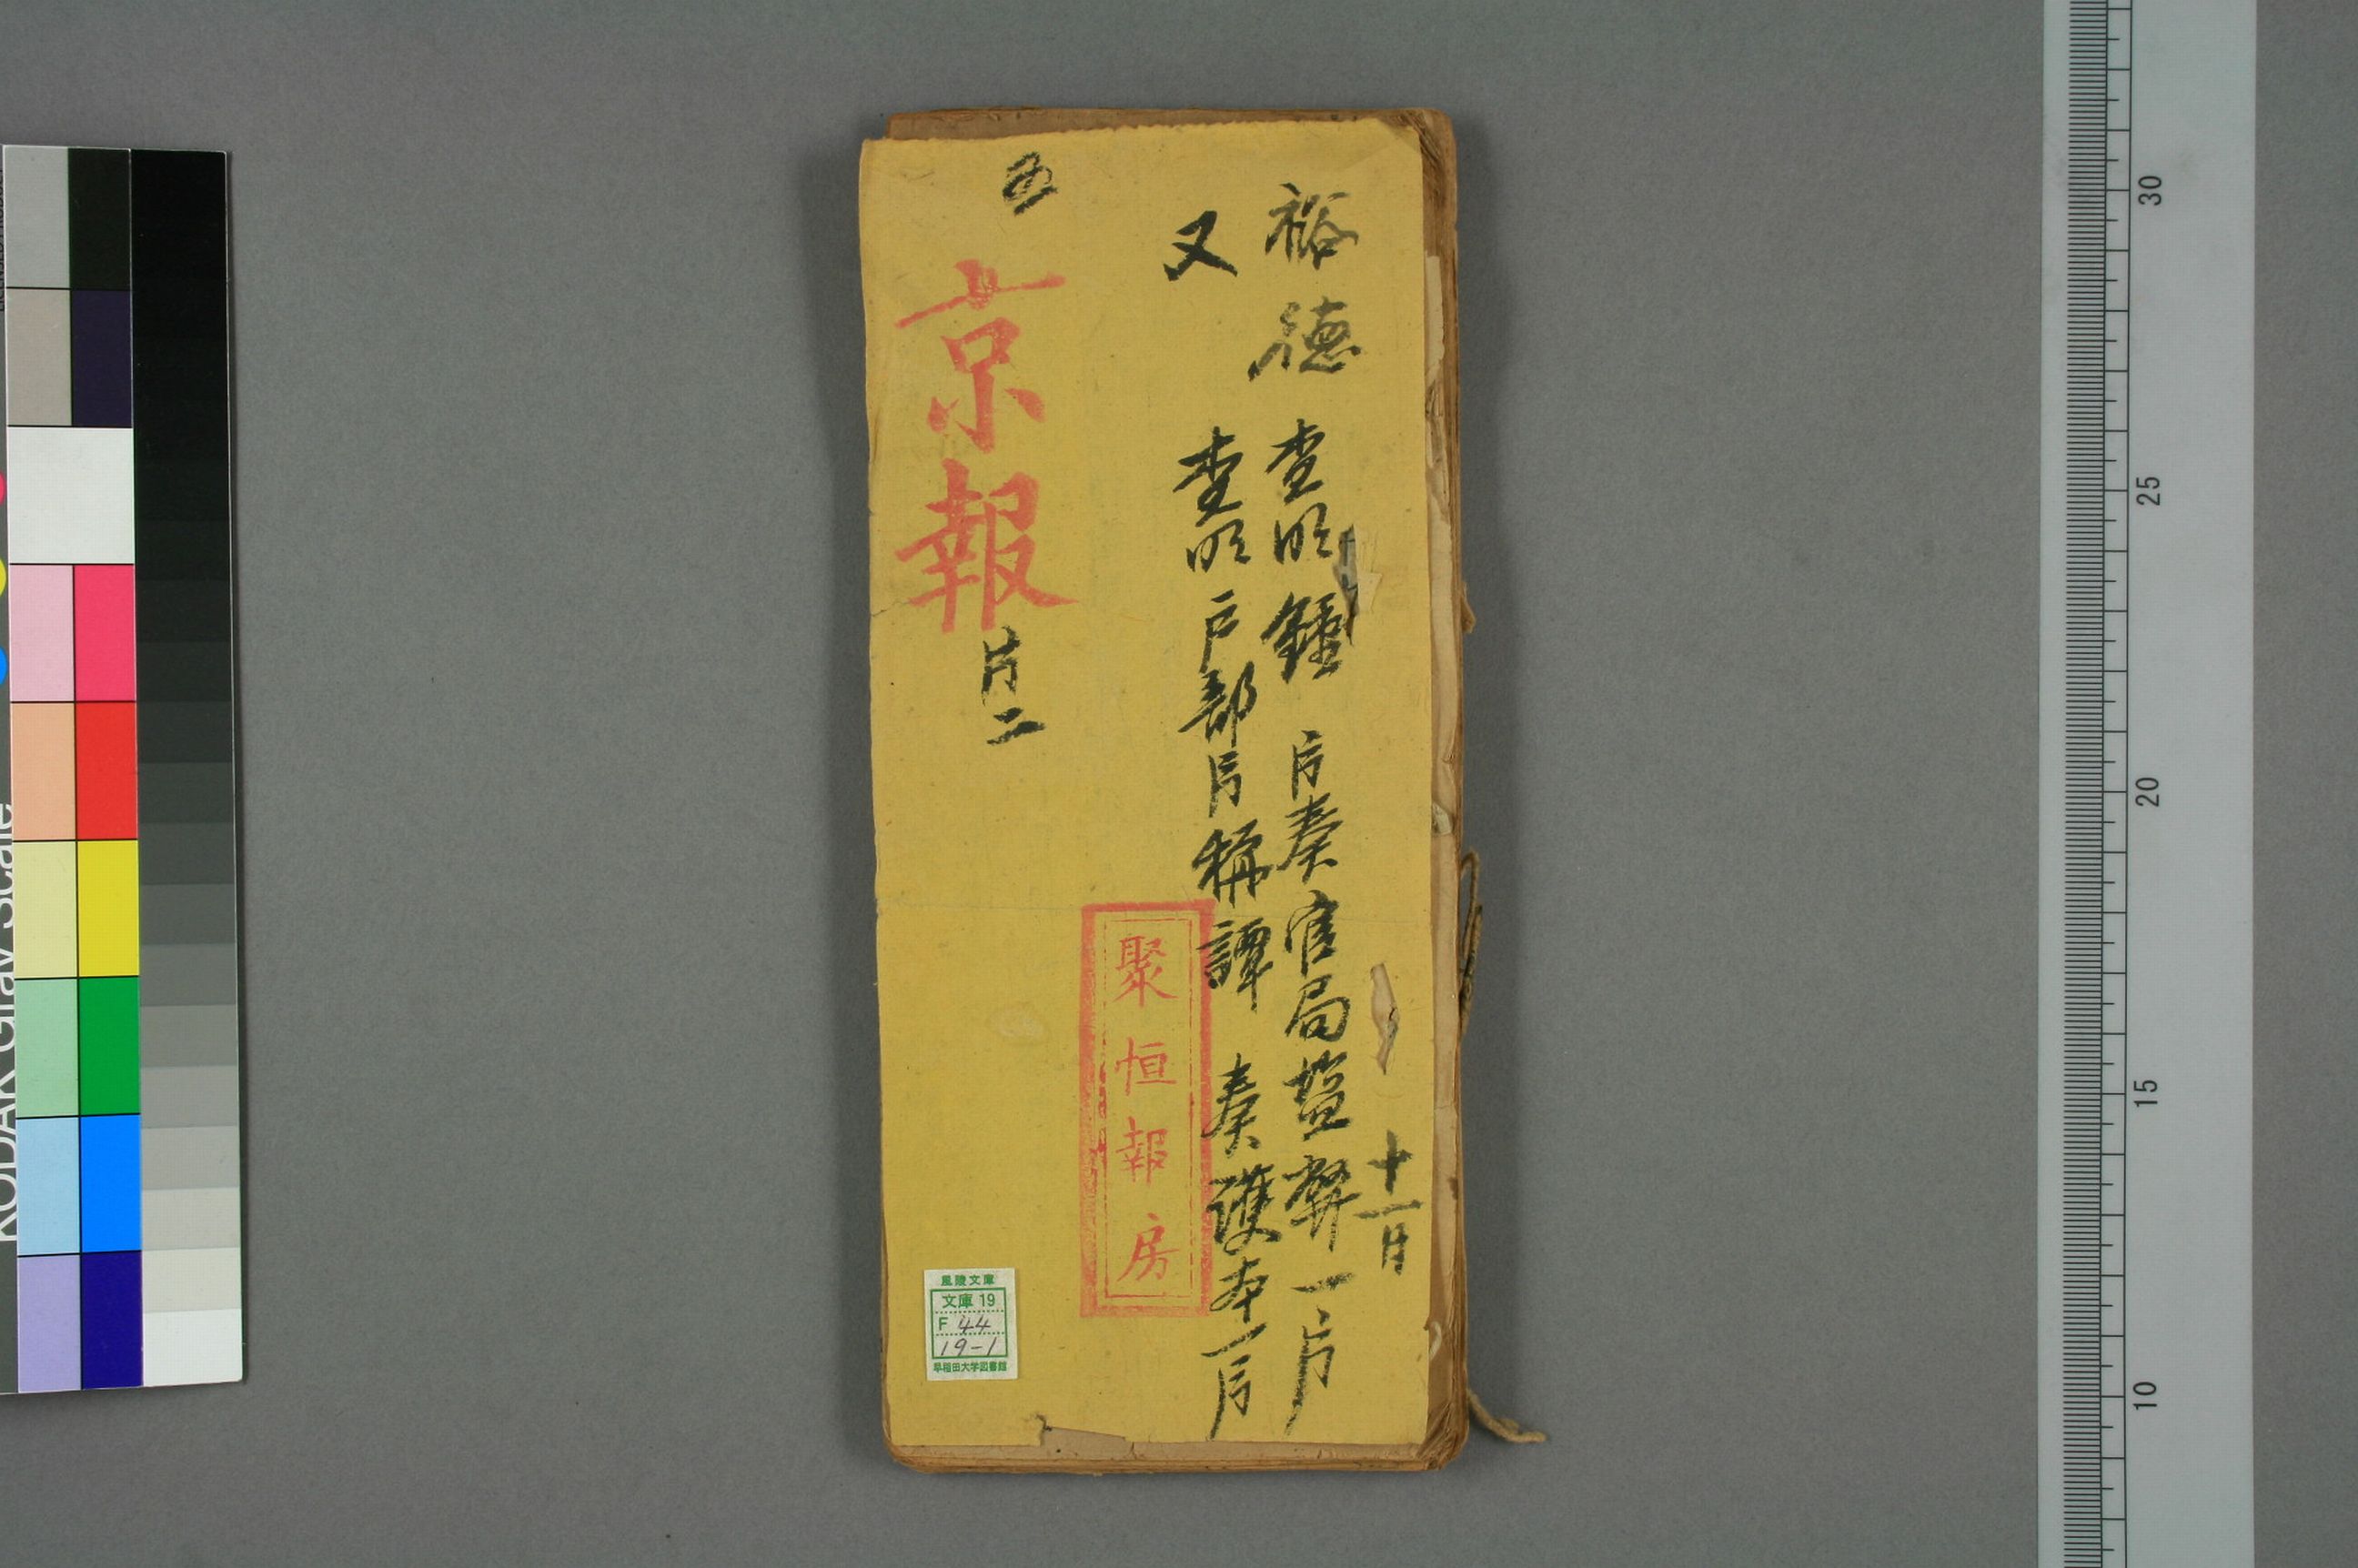 十一月
裕德 查明鍾 片奏官局鹽弊一片
又 查明戶部片稱譚 奏護本一片
京報
片二
聚恒報房
風陵文庫
文庫 19
F 44
19-1
早稲田大学図書館
KODAK Gray Scale
30
25
20
15
10